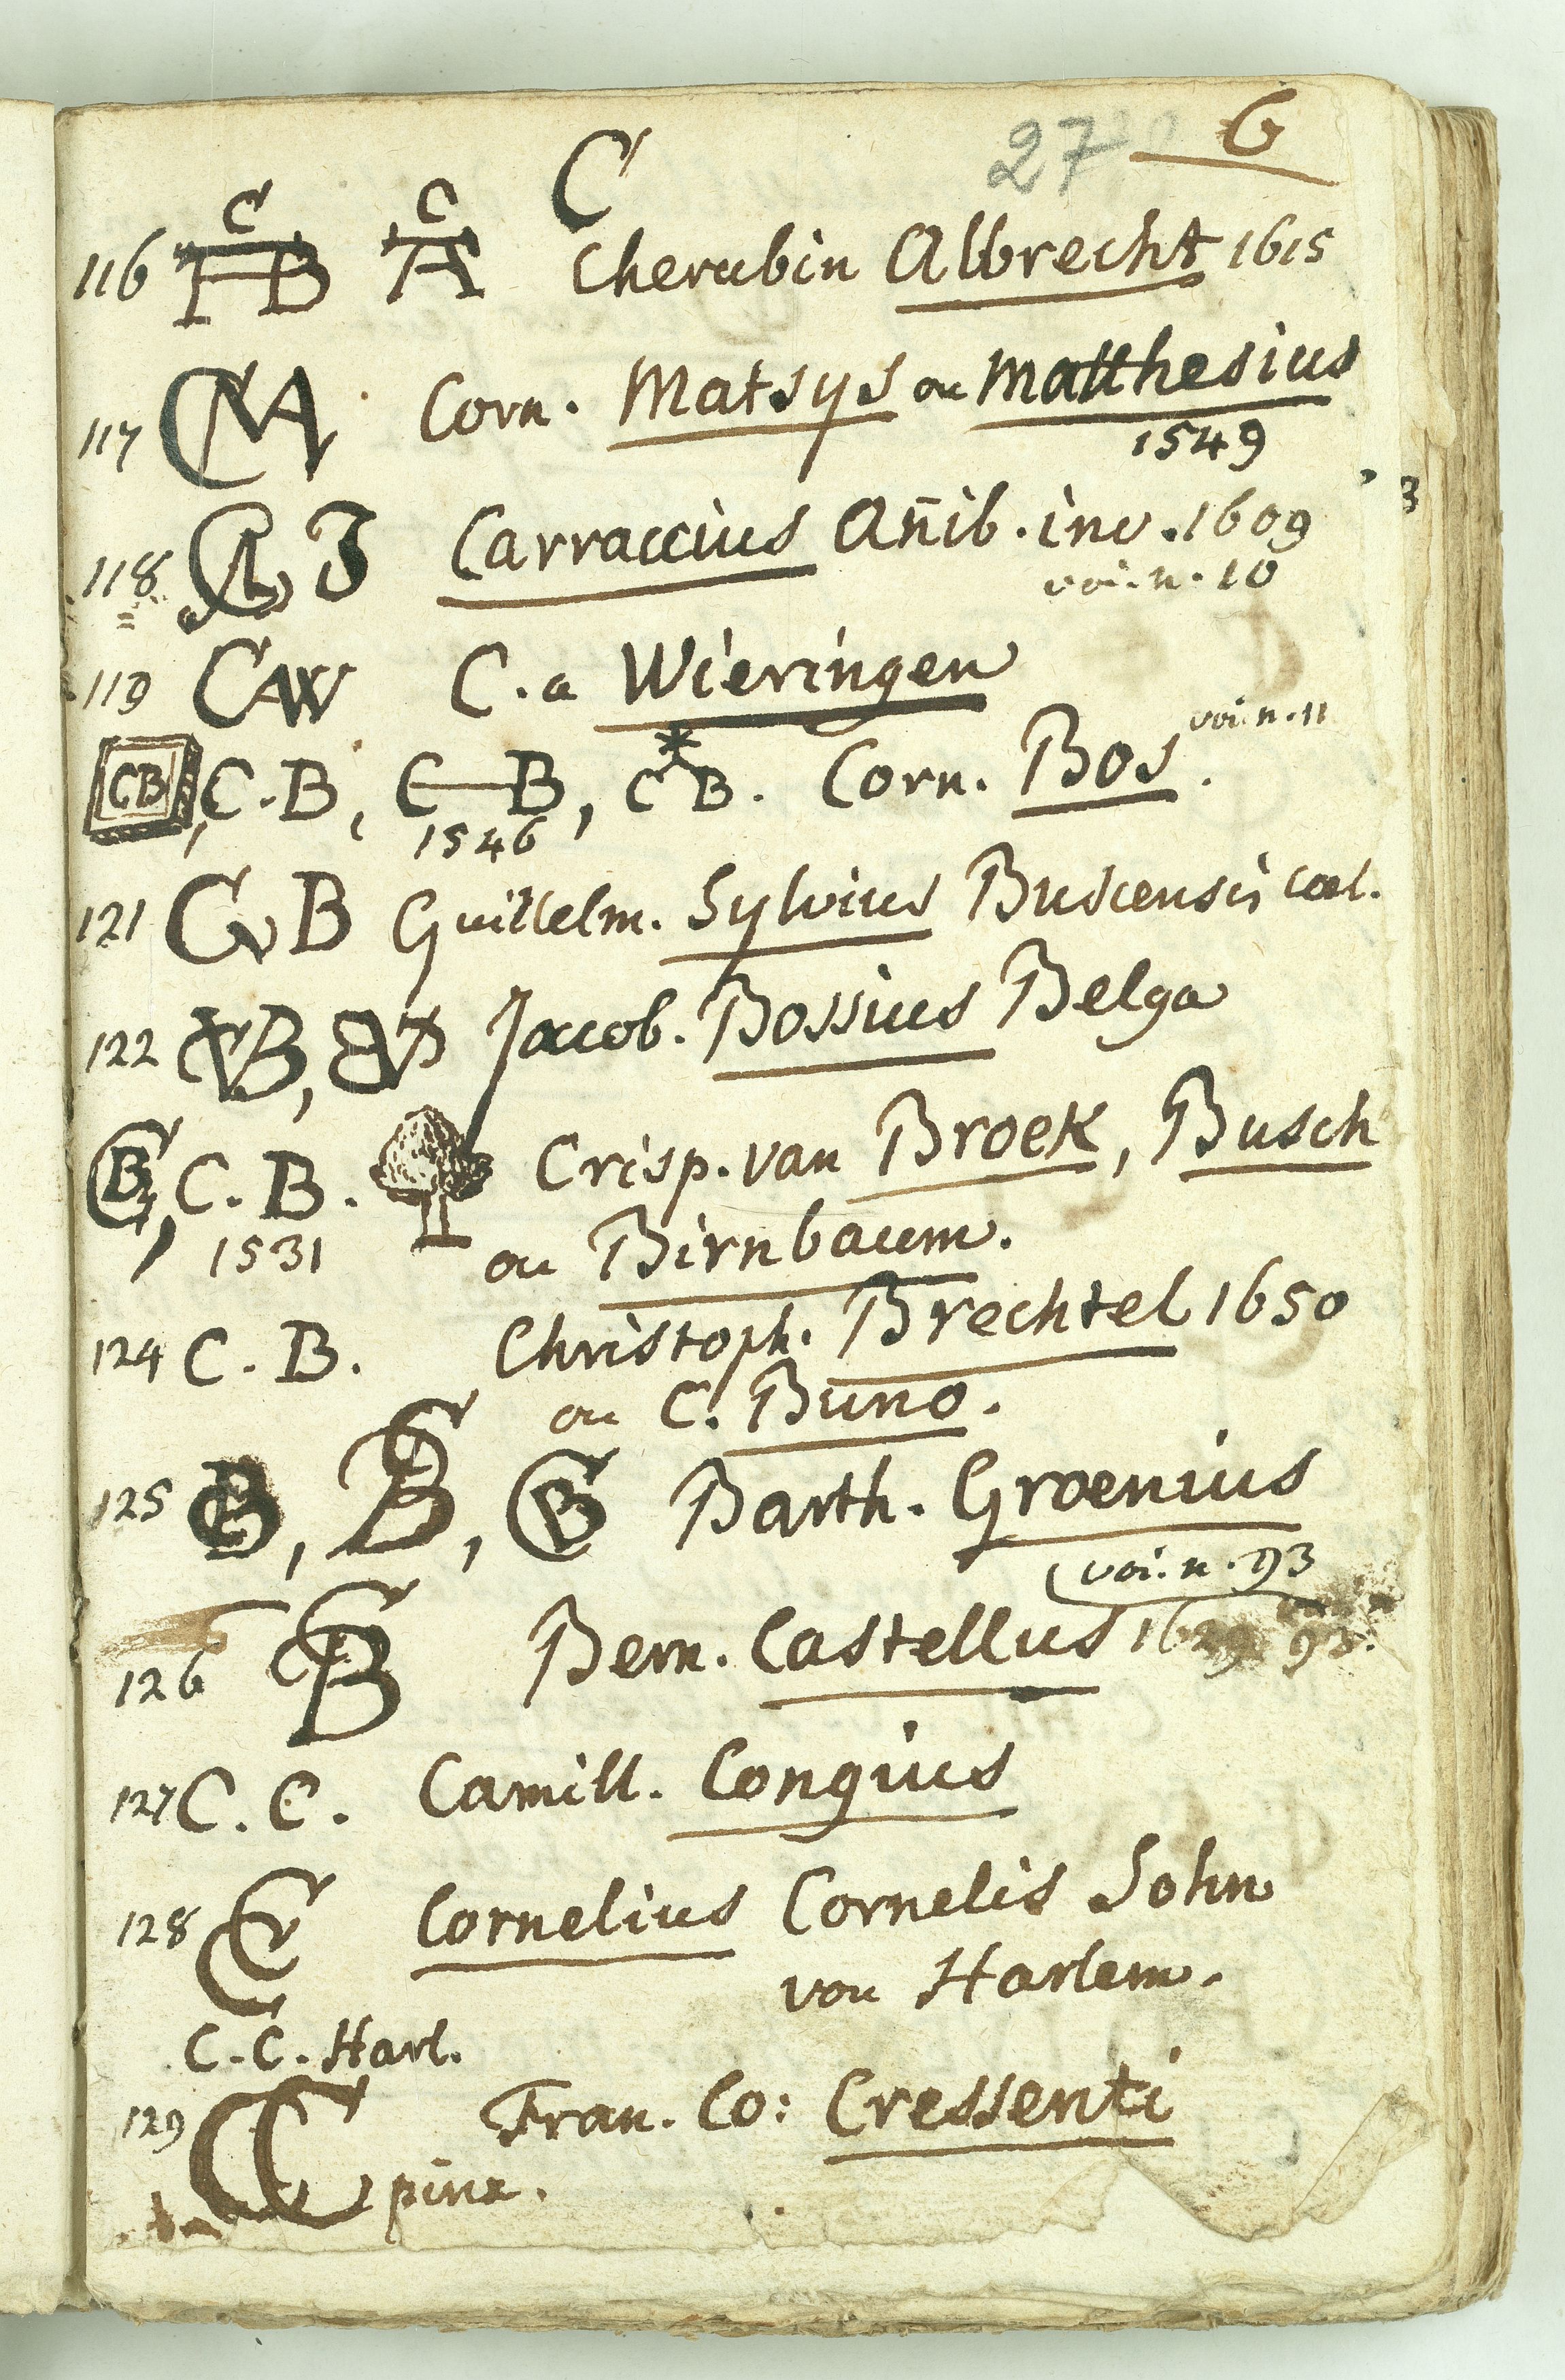 27 6
C
116 C AB C A Cherubin Albrecht 1615
117 CMA Corn. Matsys ou Matthesius
1549
118 CA J Carraccius Añib. inv. 1609
voi. n. 10
119 CAW C. a Wieringen
CB, C. B, C—B, C*B. Corn. Bos. voi. n. 11
1546
121 G B Guillelm. Sylvius Buscensis cael.
122 Jacob. Bossius Belga
CB, C. B. Crisp. van Broek, Busch
1531 ou Birnbaum.
124 C. B. Christoph. Brechtel 1650
ou C. Buno.
125 CB, CB, CB Barth. Groenius
voi. n. 93
126 CB Bern. Castellus 1629 93.
127 C. C. Camill. Congius
128 CC Cornelius Cornelis Sohn
von Harlem.
C. C. Harl.
129 CC pinx. Fran. Co: Cressenti